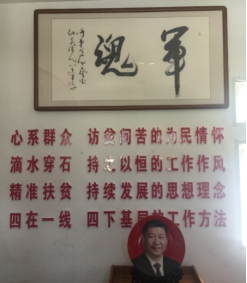 军魂
心系群众 访贫问苦的为民情怀
滴水穿石 持之以恒的工作作风
精准扶贫 持续发展的思想理念
四在一线 四下基层的工作方法